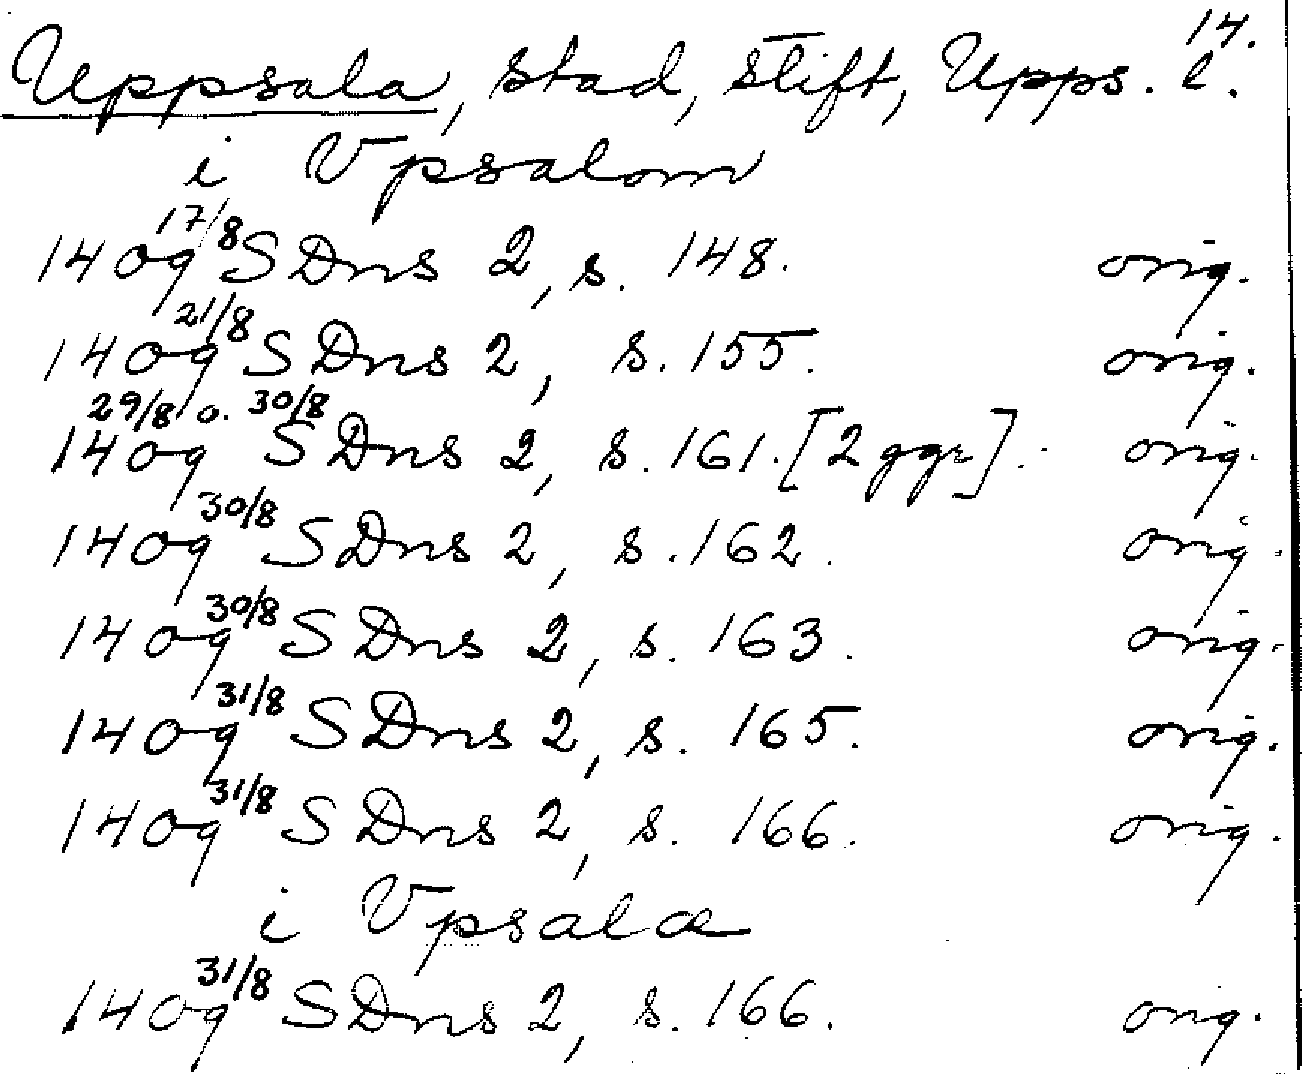 14.
Uppsala, stad, stift, Upps. l.
i Vpsalom
1409 17/8 SDns 2, s. 148. orig.
1409 21/8 SDns 2, s. 155. orig.
1409 29/8 o. 30/8 SDns 2, s. 161. [2 ggr]. orig.
1409 30/8 SDns 2, s. 162. orig.
1409 30/8 SDns 2, s. 163. orig.
1409 31/8 SDns 2, s. 165. orig.
1409 31/8 SDns 2, s. 166. orig.
i Vpsalæ
1409 31/8 SDns 2, s. 166. orig.